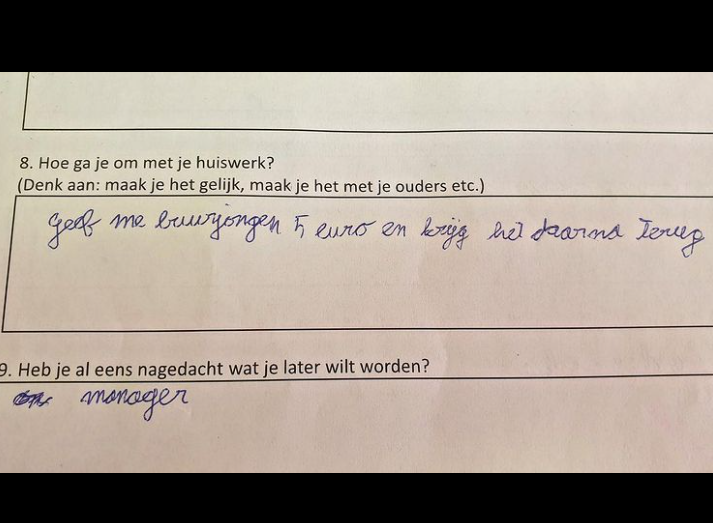 8. Hoe ga je om met je huiswerk?
(Denk aan: maak je het gelijk, maak je het met je ouders etc.)
geef me buurjongen 5 euro en krijg het daarna terug
9. Heb je al eens nagedacht wat je later wilt worden?
manager